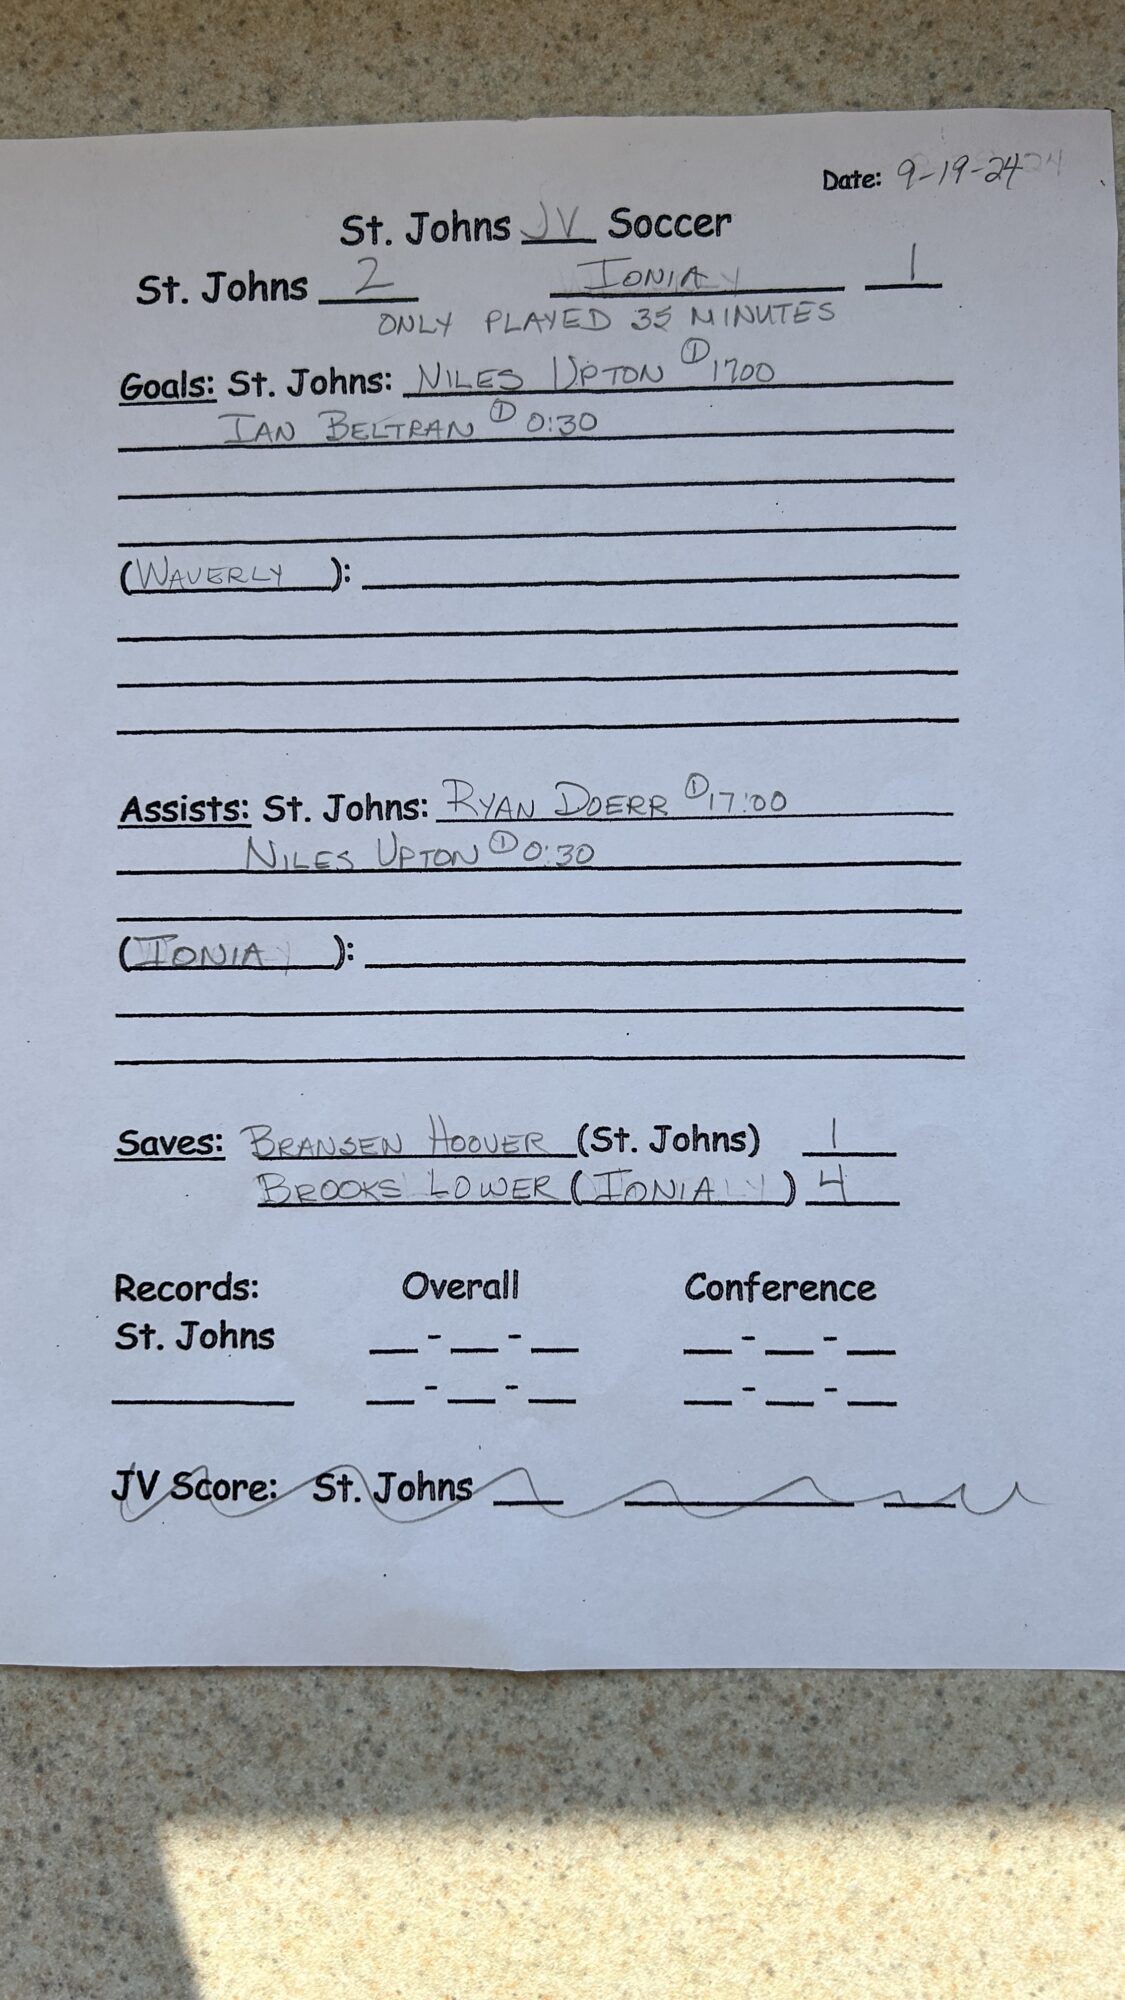 Date: 9-19-24
St. Johns JV Soccer
St. Johns 2 IONIA 1
ONLY PLAYED 35 MINUTES
Goals: St. Johns: NILES UPTON ① 1700
IAN BELTRAN ① 0:30
(WAVERLY):
Assists: St. Johns: RYAN DOERR ① 17:00
NILES UPTON ① 0:30
(IONIA):
Saves: BRANSEN HOOVER (St. Johns) 1
BROOKS LOWER (IONIA) 4
Records: Overall Conference
St. Johns __-__-__ __-__-__
__-__-__ __-__-__
JV Score: St. Johns